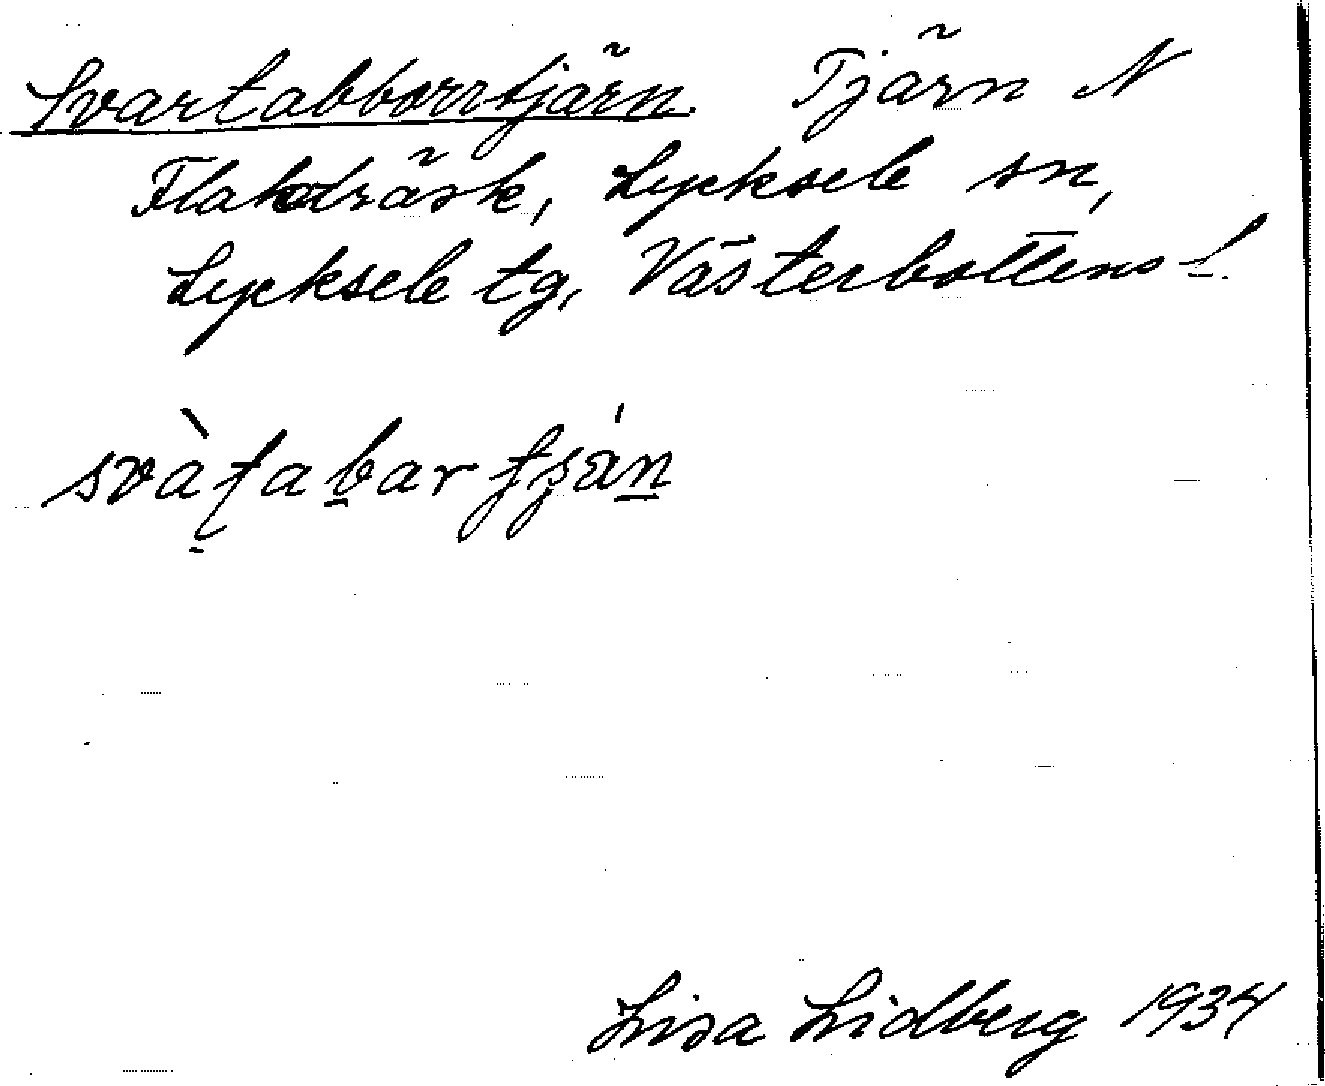 Svartabborrtjärn Tjärn N
Flakaträsk, Lycksele sn,
Lycksele tg, Västerbottens l.
svàʈabar ʈʂán
Lisa Lidberg 1934